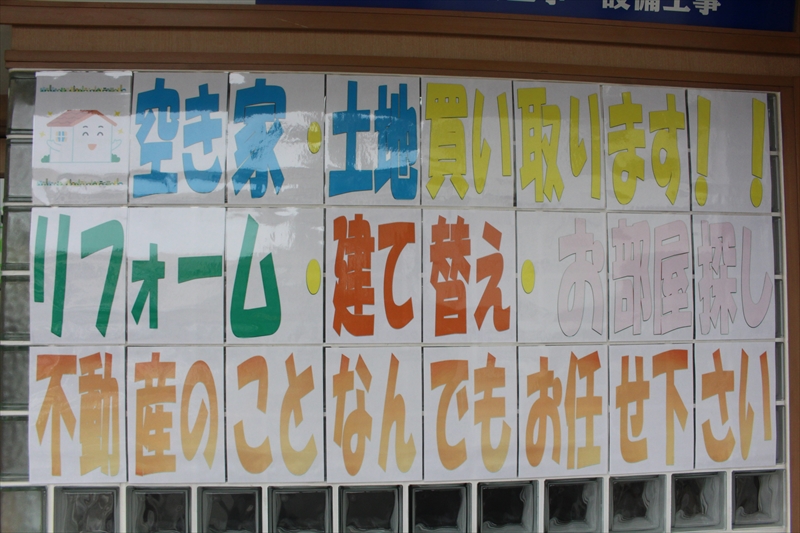 設備工事
空き家・土地買い取ります！！
リフォーム・建て替え・お部屋探し
不動産のことなんでもお任せ下さい